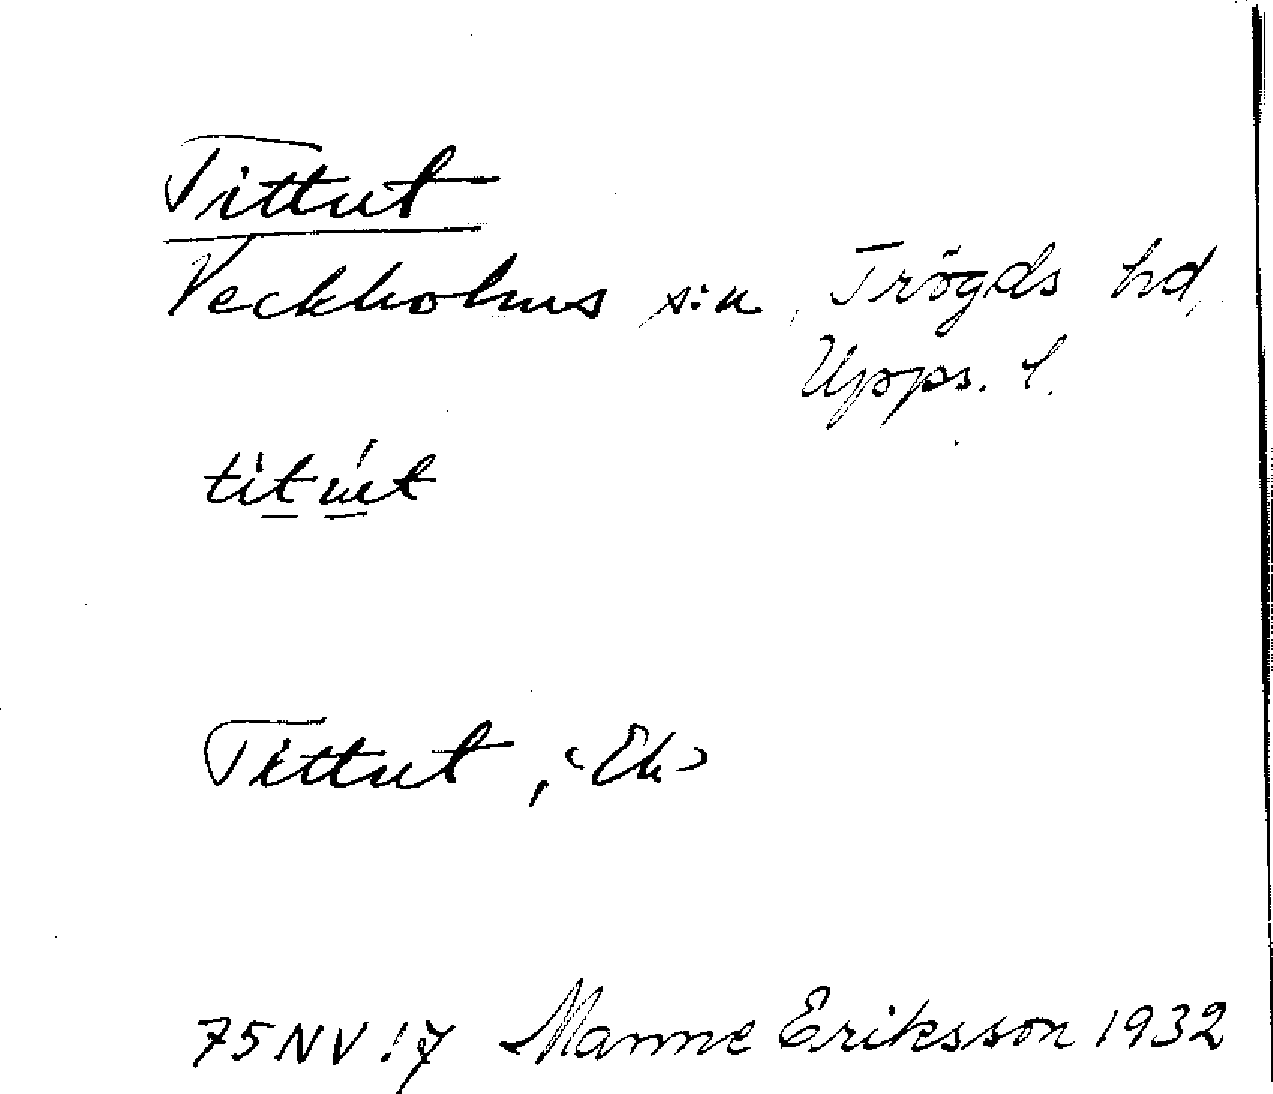 Tittut
Veckholms s:n, Trögds hd,
Upps. l.
tìtút
Tittut, <Ek>
75NV!7 Manne Eriksson 1932